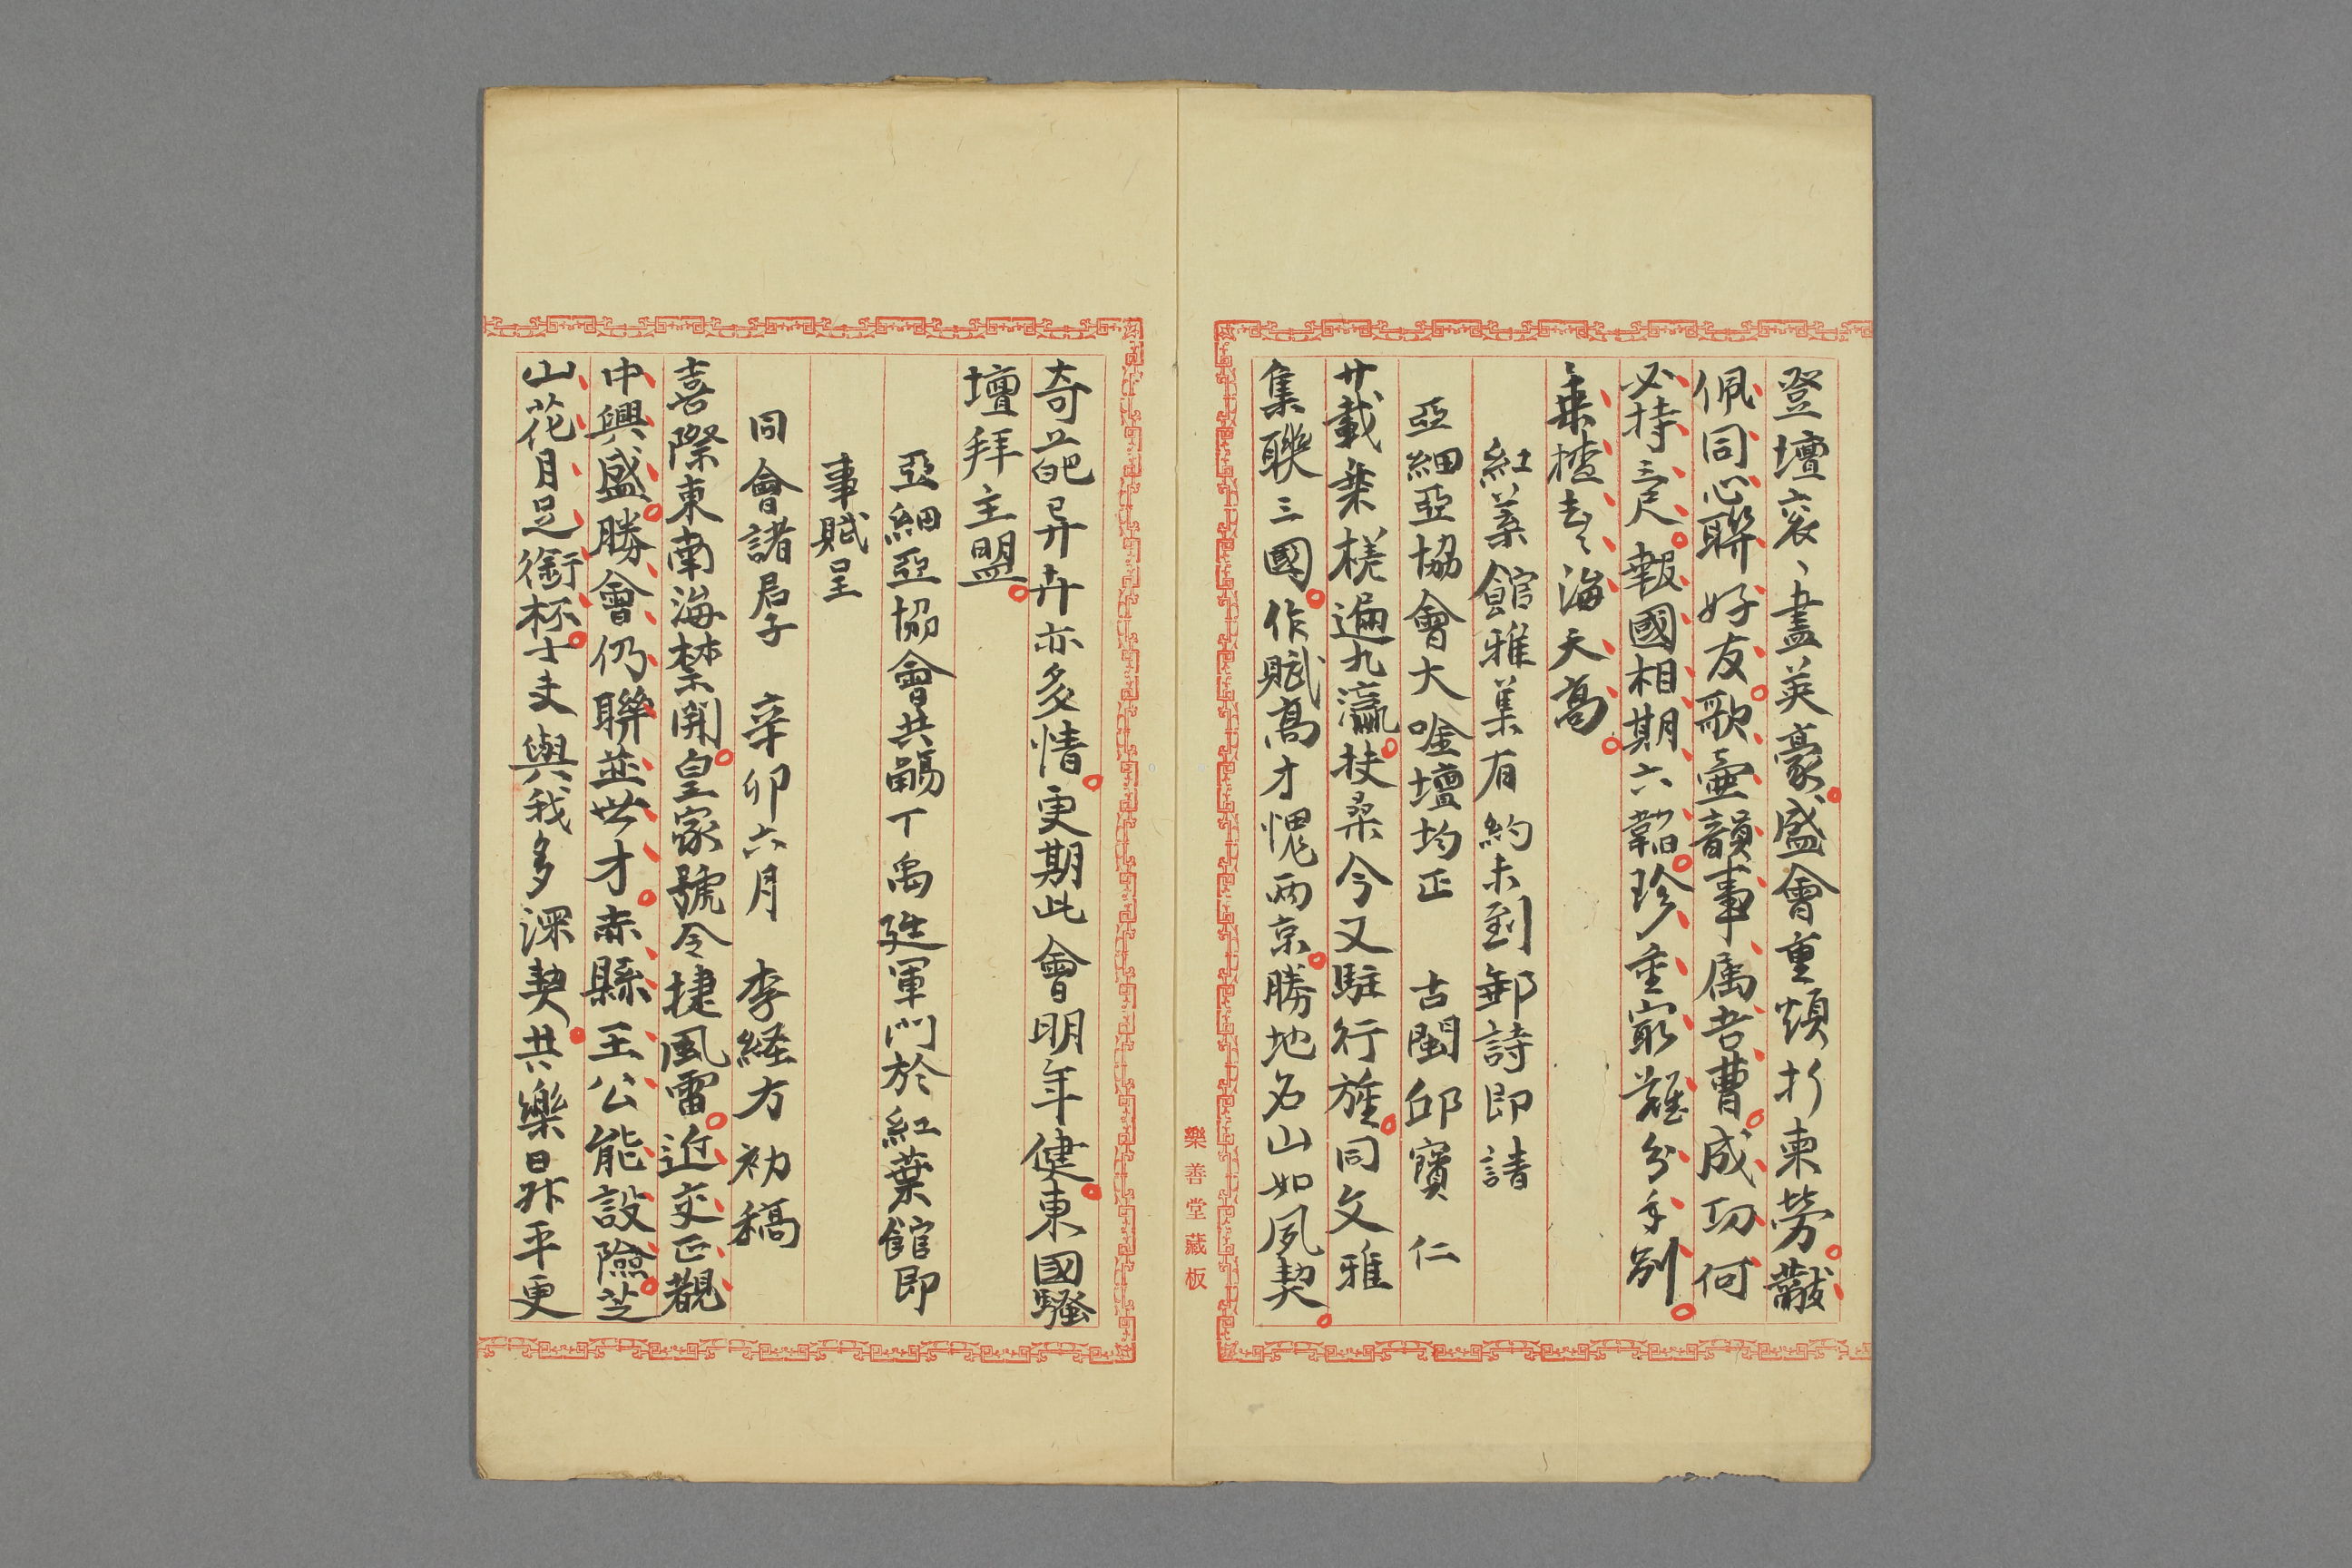 登壇衮〻盡英豪盛會重煩折柬勞黻
佩同心聯好友歌壷韻事属吾曹成功何
必持三尺報國相期六韜珍重寂難分手別
乗楂去〻海天髙
紅葉館雅集有約未到郵詩即請
亞細亞協會大唫壇均正 古閩邱寳仁
廿載乗槎遍九瀛扶桑今又駐行旌同文雅
集聨三國作賦髙才愧两京勝地名山如夙契
奇葩异卉亦多情更期此會明年健東國騷
壇拜主盟
亞細亞協會共觴丁禹廷軍門於紅葉館即
事賦呈
同會諸君子 辛卯六月 李経方初稿
喜際東南海禁開皇家號令捷風雷近交正覩
中興盛勝會仍聯並世才赤縣王公能設險芝
山花月足銜杯士夫與我多深契共樂昌平更
樂善堂藏板